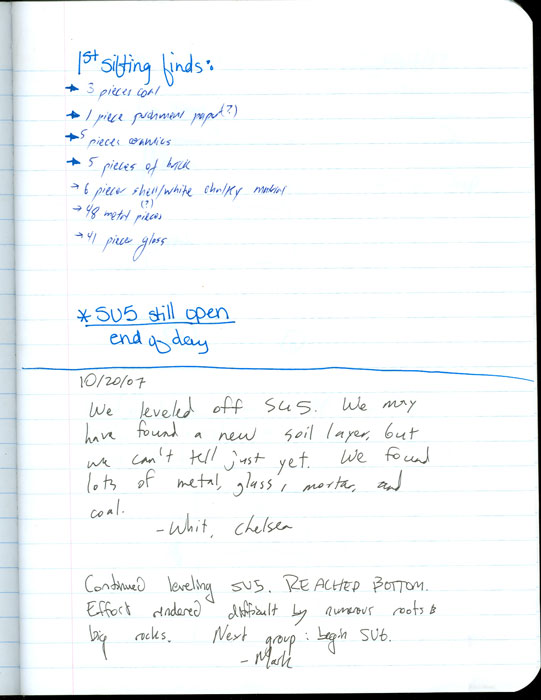 1st Sifting finds:
→ 3 pieces coal
→ 1 piece parchment paper(?)
→ 5 pieces ceramics
→ 5 pieces of brick
→ 6 pieces shell/white chalky material
→ 48 metal (?) pieces
→ 41 pieces glass
* SU5 still open
end of day
10/20/07
We leveled off SU5. We may
have found a new soil layer, but
we can't tell just yet. We found
lots of metal, glass, mortar, and
coal.
- Whit, Chelsea
Continued leveling SU5. REACHED BOTTOM.
Effort rendered difficult by numerous roots &
big rocks. Next group: begin SU6.
- Mark